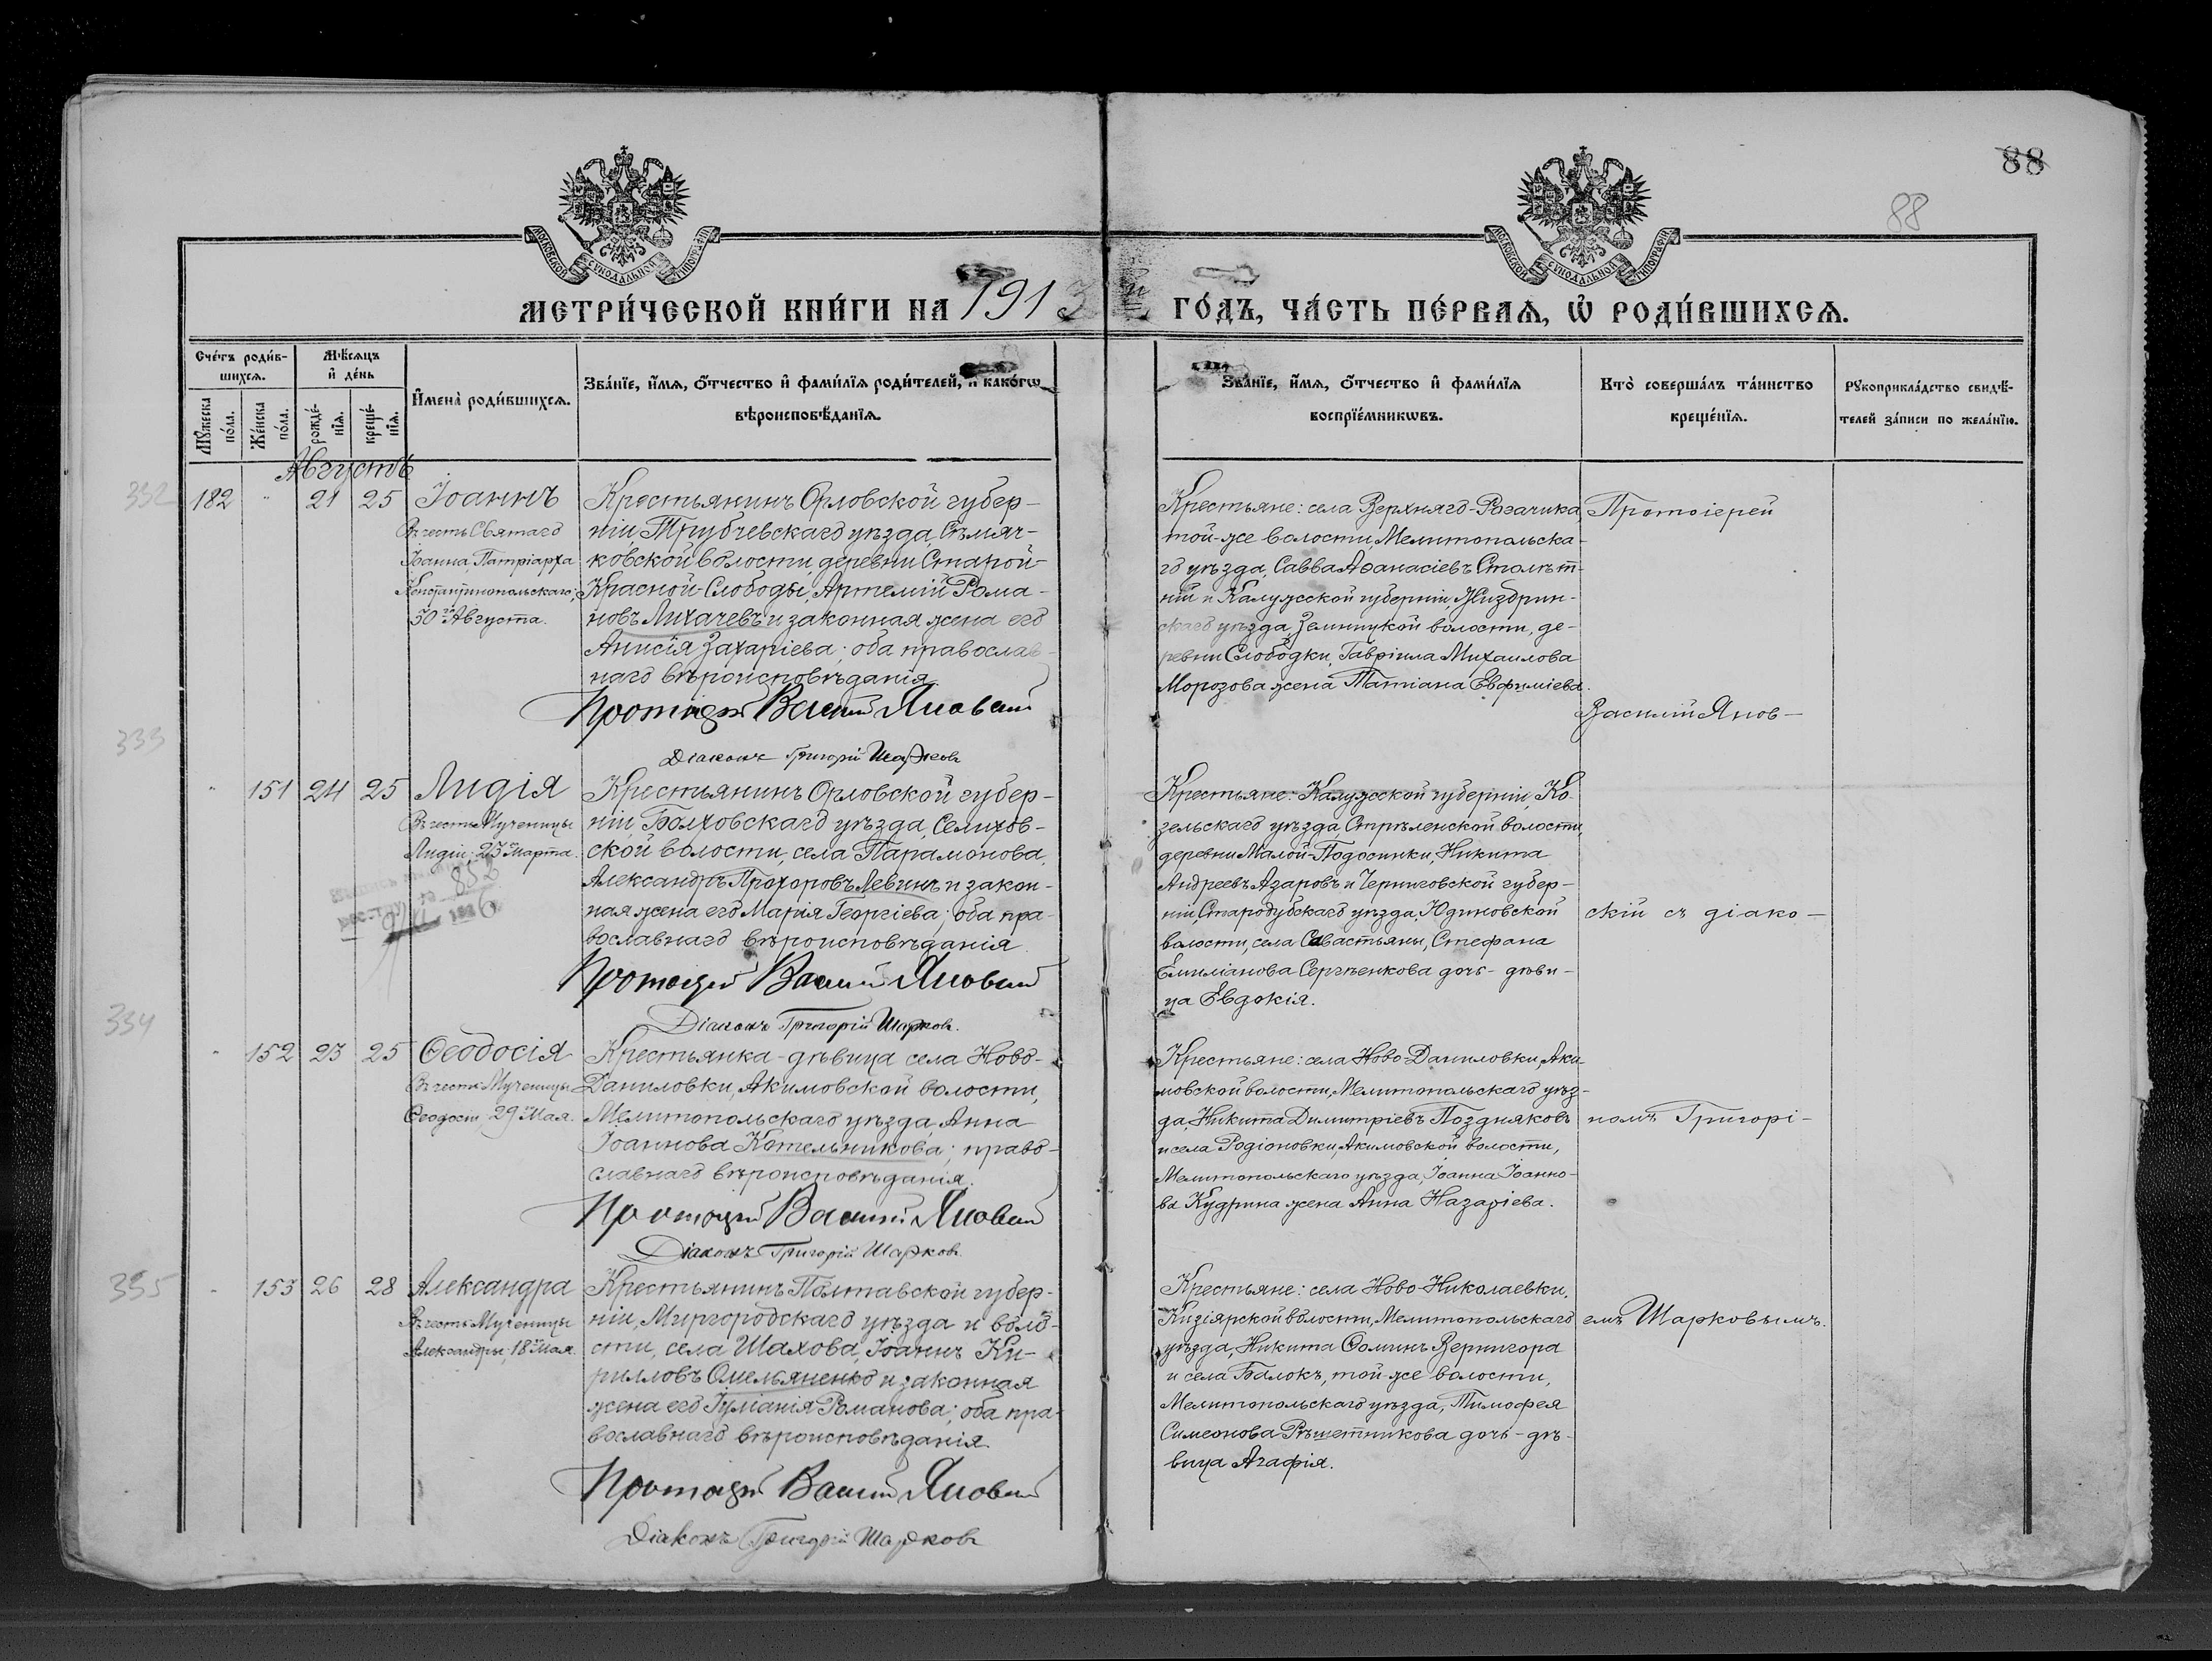 88
88
МОСКОВСКОЙ СѴНОДАЛЬНОЙ ТИПОГРАФІИ
МОСКОВСКОЙ СѴНОДАЛЬНОЙ ТИПОГРАФІИ
МЕТРИ́ЧЕСКОЙ КНИ́ГИ НА 1913 й ГО́ДЪ, ЧА́СТЬ ПЕ́РВАѦ, Ѡ҆ РОДИ́ВШИХСѦ.
Сче́тъ роди́в-
шихсѧ.
Мꙋ́жеска по́ла.
Же́нска по́ла.
Мѣ́сѧцъ
и҆ де́нь
рожде́-
нїѧ.
креще́-
нїѧ.
И҆мена̀ роди́вшихсѧ.
Зва́нїе, и҆́мѧ, ѻ҆́тчество и҆ фами́лїѧ роди́телей, и҆ како́гѡ
вѣроисповѣ́данїѧ.
Зва́нїе, и҆́мѧ, ѻ҆́тчество и҆ фами́лїѧ
воспрїе́мникѡвъ.
Кто̀ соверша́лъ та́инство
креще́нїѧ.
Рꙋкоприкла́дство свидѣ́-
телей за́писи по жела́нїю.
Августъ
332
182 " 21 25 Іоаннъ
Въ честь Святаго
Іоанна, Патріарха
Константинопольскаго;
30го Августа.
Крестьянинъ Орловской губер-
ніи, Трубчевскаго уѣзда, Сѣмяч-
ковской волости, деревни Старой-
Красной-Слободы, Артемій Рома-
новъ Лихачевъ и законная жена его
Анисія Захаріева; оба православ-
наго вѣроисповѣданія.
Протоіерей Василій Яновскій
Діаконъ Григорій Шарковъ
Крестьяне: села Верхняго-Рогачика,
той-же волости, Мелитопольска-
го уѣзда, Савва Аѳанасіевъ Столѣт-
ній и Калужской губерніи, Жиздрин-
скаго уѣзда, Земницкой волости, де-
ревни Слободки, Гавріила Михаилова
Морозова жена Татіана Евфиміева.
Протоіерей
Василій Янов-
333
" 151 24 25 Лидія
Въ честь Мученицы
Лидіи; 23го Марта.
852
Крестьянинъ Орловской губер-
ніи, Болховскаго уѣзда, Селихов-
ской волости, села Парамонова,
Александръ Прохоровъ Левинъ и закон-
ная жена его Марія Георгіева; оба пра-
вославнаго вѣроисповѣданія.
Протоіерей Василій Яновскій
Діаконъ Григорій Шарковъ.
Крестьяне: Калужской губерніи, Ко-
зельскаго уѣзда, Стрѣленской волости,
деревни Малой-Подосинки, Никита
Андреевъ Азаровъ и Черниговской губер-
ніи, Стародубскаго уѣзда, Юдиновской
волости, села Савастьяны, Стефана
Емиліанова Сергѣенкова дочь-дѣви-
ца Евдокія.
скій съ діако-
334
" 152 23 25 Ѳеодосія
Въ честь Мученицы
Ѳеодосіи, 29го Мая.
Крестьянка-дѣвица села Ново-
Даниловки, Акимовской волости,
Мелитопольскаго уѣзда, Анна
Іоаннова Котельникова; право-
славнаго вѣроисповѣданія.
Протоіерей Василій Яновскій
Діаконъ Григорій Шарковъ
Крестьяне: села Ново-Даниловки, Аки-
мовской волости, Мелитопольскаго уѣз-
да, Никита Димитріевъ Поздняковъ
и села Родіоновки, Акимовской волости,
Мелитопольскаго уѣзда, Іоанна Іоанно-
ва Кудрина жена Анна Назаріева.
номъ Григорі-
335
" 153 26 28 Александра
Въ честь Мученицы
Александры, 18го Мая.
Крестьянинъ Полтавской губер-
ніи, Миргородскаго уѣзда и воло-
сти, села Шахова, Іоаннъ Ки-
рилловъ Омельяненко и законная
жена его Іуліанія Романова; оба пра-
вославнаго вѣроисповѣданія.
Протоіерей Василій Яновскій
Діаконъ Григорій Шарковъ
Крестьяне: села Ново-Николаевки,
Кизіярской волости, Мелитопольскаго
уѣзда, Никита Ѳоминъ Вернигора
и села Балокъ, той-же волости,
Мелитопольскаго уѣзда, Тимофея
Симеонова Рѣшетникова дочь-дѣ-
вица Агафія.
емъ Шарковымъ.